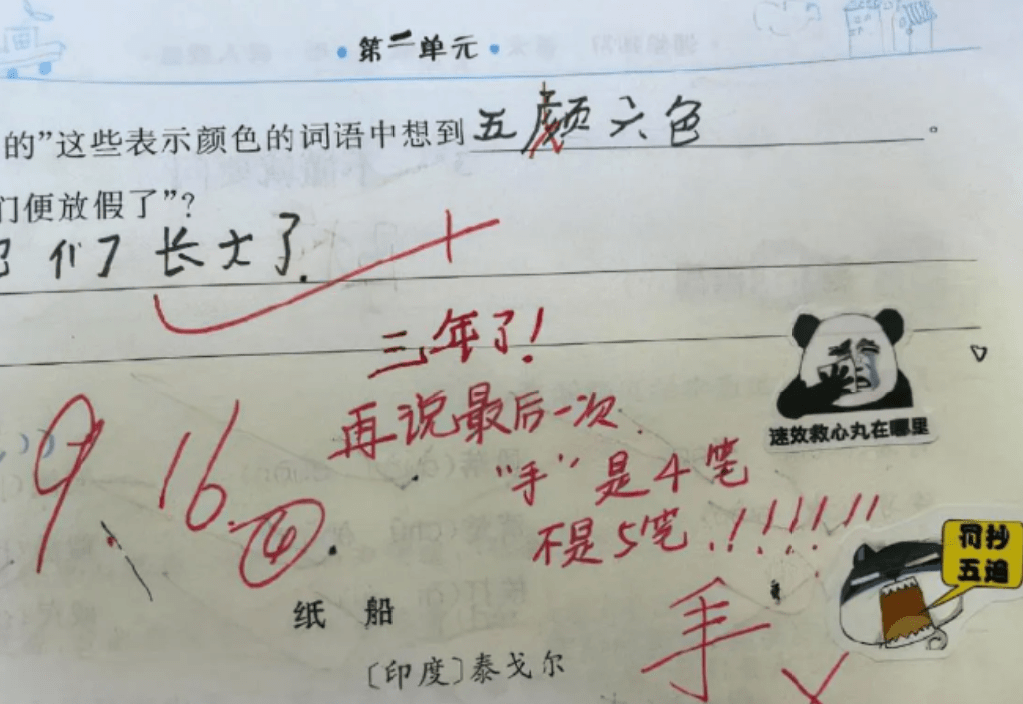 第二单元
的”这些表示颜色的词语中想到五颜六色。
们便放假了”？
们了长大了.
三年了！
再说最后一次.
“手”是4笔
不是5笔.！！！！！！
速效救心丸在哪里
9.16.
④.
罚抄
五遍
手
纸 船
〔印度〕泰戈尔